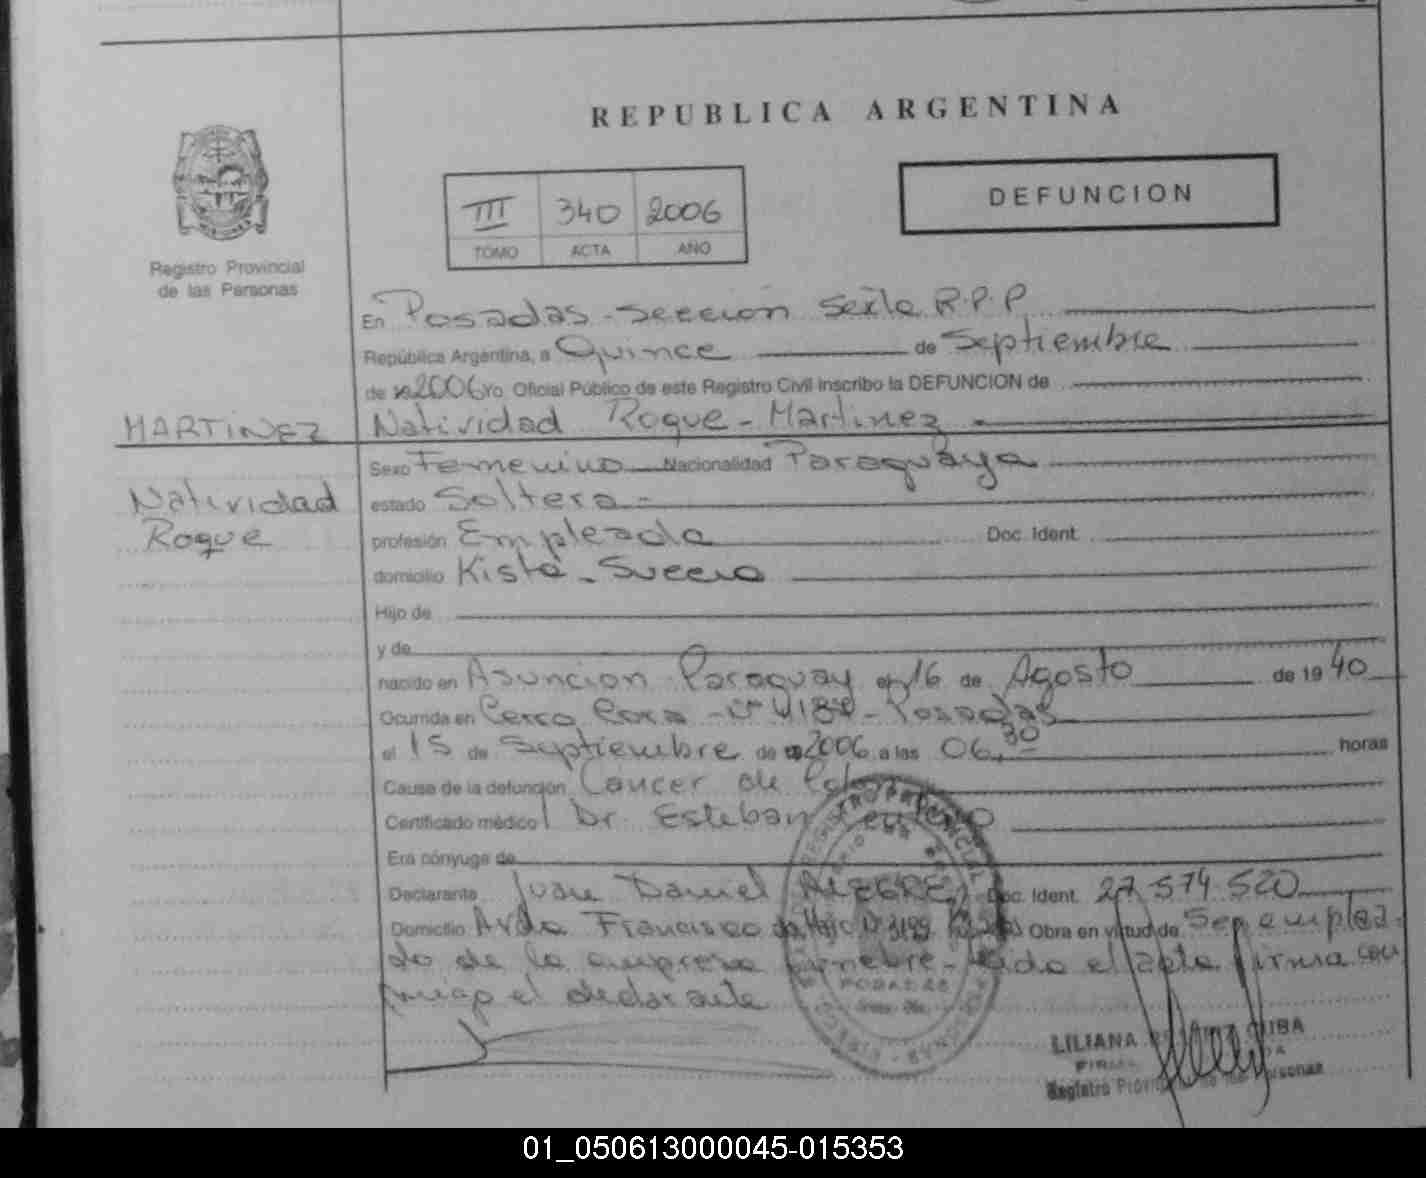 REPUBLICA ARGENTINA
III 340 2006
TOMO ACTA AÑO
DEFUNCION
Registro Provincial
de las Personas
En Posadas - Sección Sexta R.P.P.
República Argentina, a Quince de Septiembre
de 2006 Yo, Oficial Público de este Registro Civil inscribo la DEFUNCION de
MARTINEZ
Natividad Roque - Martinez
Sexo Femenino Nacionalidad Paraguaya
Natividad
Roque
estado Soltera -
profesión Empleada Doc. Ident.
domicilio Kista - Suecia
Hijo de
y de
nacido en Asunción Paraguay el 16 de Agosto de 1940
Ocurrida en Cerro Cora - Nº 4184 - Posadas
el 15 de Septiembre de 2006 a las 06,30 horas
Cause de la defunción Cancer de
Certificado médico Dr. Esteban
Era cónyuge de
Declarante Juan Daniel ALEGRE Doc. Ident. 27.574.520
Domicilio Avda Francisco de Haro Nº 3199 Posadas Obra en virtud de Ser emplea-
do de la empresa funebre - Leido el acta firma con
migo el declarante
REGISTRO PROVINCIAL
POSADAS
LILIANA
Registro Personas
01_050613000045-015353